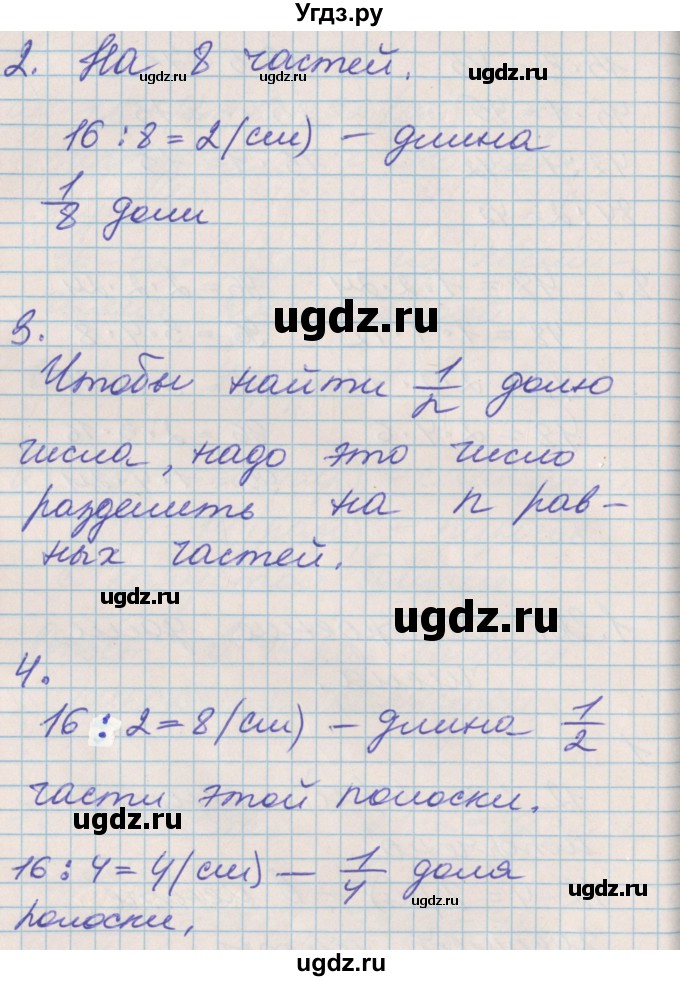 Угдз.ру
2. На 8 частей.
ugdz.ru ugdz.ru ugdz.ru
16 : 8 = 2 (см) – длина
1/8 доли
ugdz.ru
3.
Чтобы найти 1/n долю
числа, надо это число
разделить на n рав-
ных частей.
ugdz.ru
ugdz.ru
4.
16 : 2 = 8 (см) – длина 1/2
части этой полоски.
ugdz.ru
16 : 4 = 4 (см) – 1/4 доля
ugdz.ru ugdz.ru
полоски,
ugdz.ru